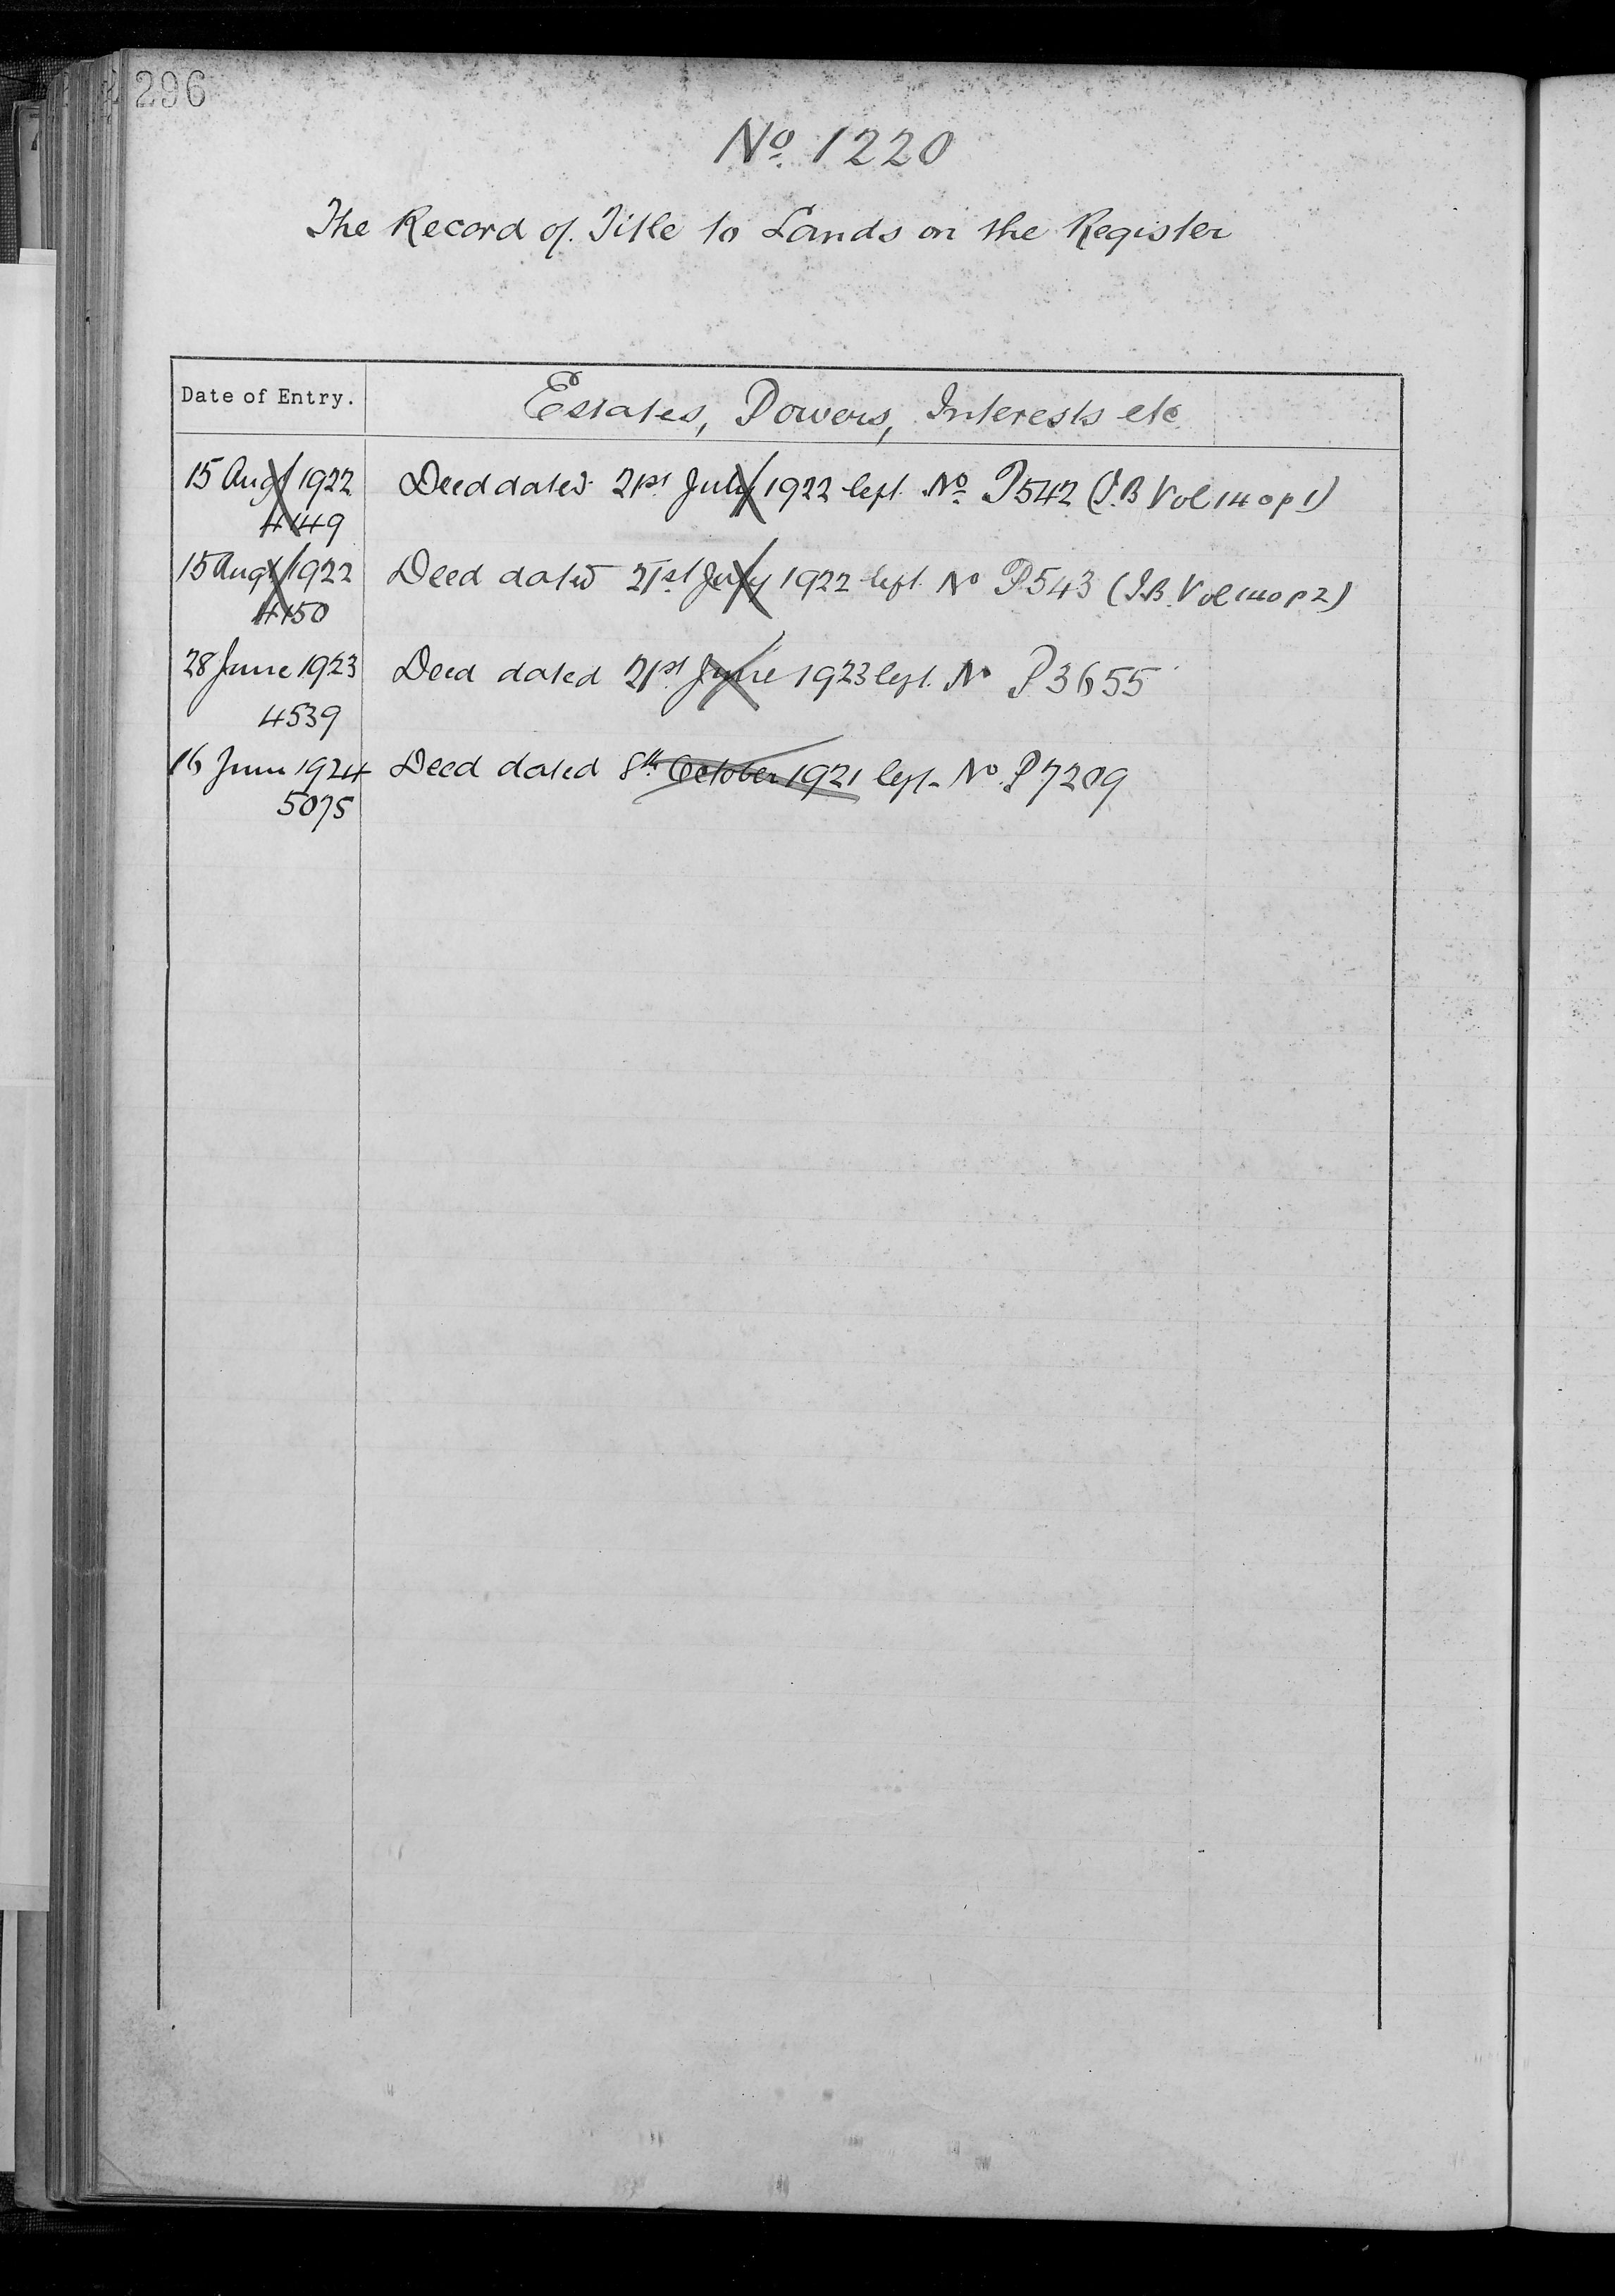 296
No. 1220
The Record of Title to Lands on the Register
Date of Entry. Estates, Powers, Interests etc
15 Augt 1922 Deed dated 21st July 1922 left No. P542 (I.B Vol 140 p 1)
4149
15 Augt 1922 Deed dated 21st July 1922 left No P543 (I.B. Vol 140 p 2)
4150
28 June 1923 Deed dated 21st June 1923 left No P3655
4539
16 June 1924 Deed dated 8th October 1921 left No P7209
5075